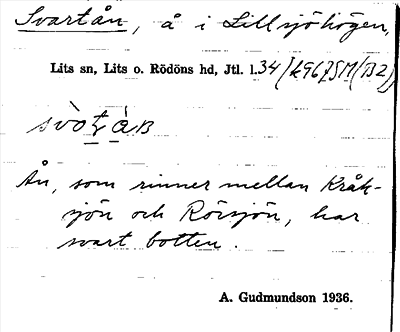 Svartån, å i Lillsjöhögen,
Lits sn, Lits o. Rödöns hd, Jtl. l.
Ån, som rinner mellan Kråk-
sjön och Rörsjön, har
svart botten.
A. Gudmundson 1936.